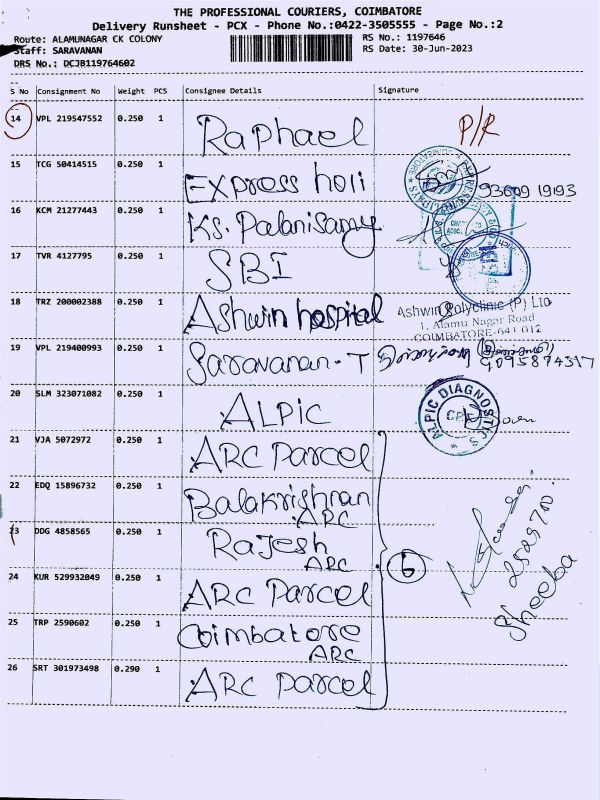 THE PROFESSIONAL COURIERS, COIMBATORE
Delivery Runsheet - PCX - Phone No.:0422-3505555 - Page No.:2
Route: ALAMUNAGAR CK COLONY
Staff: SARAVANAN
DRS No.: DCJB119764602
RS No.: 1197646
RS Date: 30-Jun-2023
S No Consignment No Weight PCS Consignee Details Signature
14 VPL 219547552 0.250 1 Raphael P/R
15 TCG 50414515 0.250 1 Express holi 93609 19193
16 KCM 21277443 0.250 1 Ks. Palanisamy
17 TVR 4127795 0.250 1 SBI
18 TRZ 200002388 0.250 1 Ashwin hospital
Ashwin Polyclinic (P) Ltd
1, Alamu Nagar Road
COIMBATORE-641 012
19 VPL 219400993 0.250 1 Saravanan-T
9095874317
20 SLM 323071082 0.250 1 ALPIC
ALPIC DIAGNOSTICS
21 VJA 5072972 0.250 1 ARC Parcel
22 EDQ 15896732 0.250 1 Balakrishnan
ARC
23 DDG 4858565 0.250 1 Rajesh
ARC
24 KUR 529932049 0.250 1 ARC Parcel
25 TRP 2590602 0.250 1 Coimbatore
ARC
26 SRT 301973498 0.290 1 ARC parcel
6
Sheeba